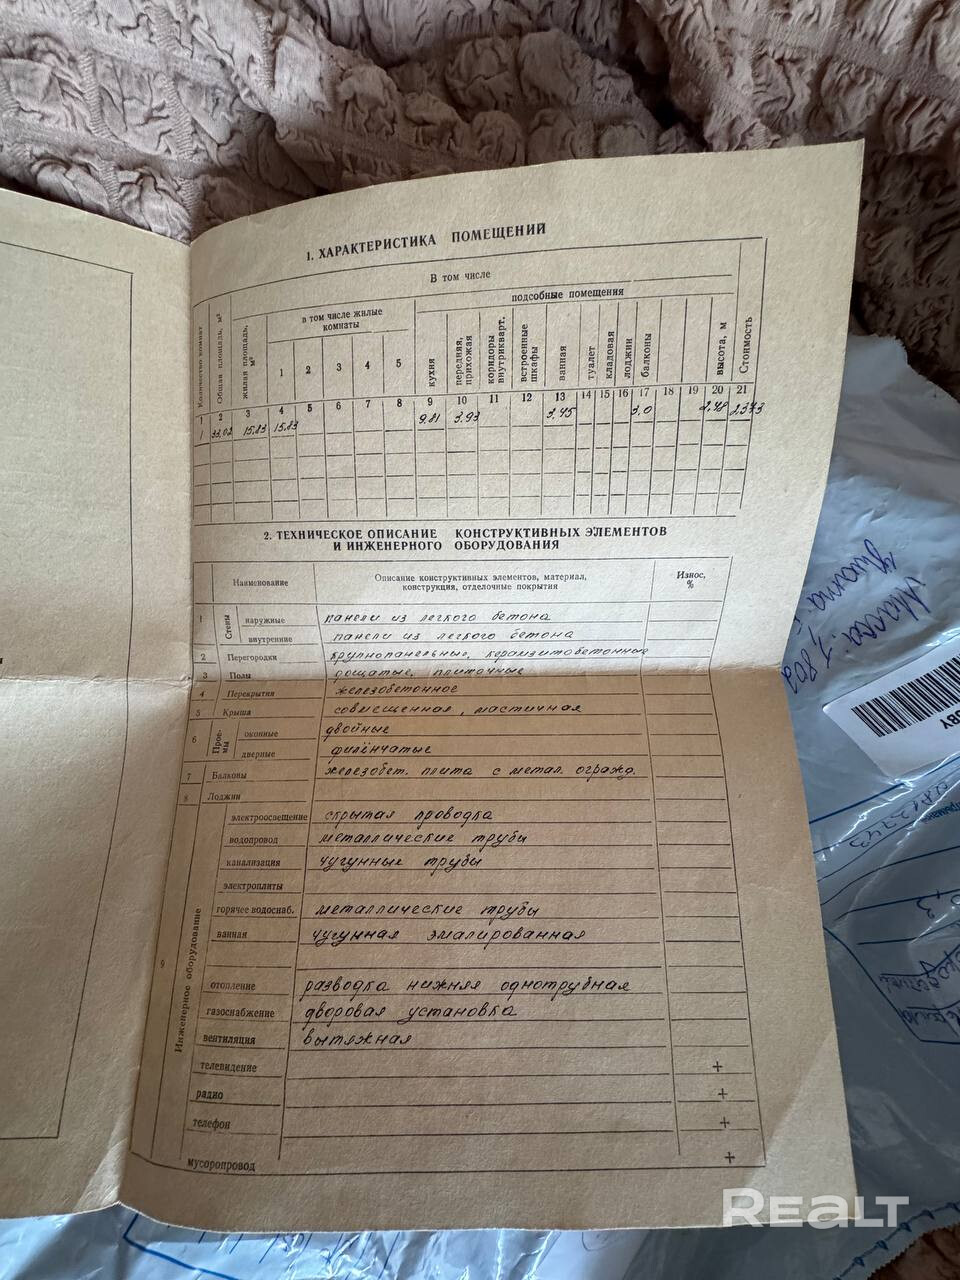 1. ХАРАКТЕРИСТИКА ПОМЕЩЕНИЙ
Количество комнат
Общая площадь, м²
В том числе
жилая площадь, м²
в том числе жилые комнаты
подсобные помещения
1 2 3 4 5
кухня
передняя, прихожая
коридоры внутрикварт.
встроенные шкафы
ванная
туалет
кладовая
лоджии
балконы
высота, м
Стоимость
1 2 3 4 5 6 7 8 9 10 11 12 13 14 15 16 17 18 19 20 21
1 33.02 15.83 15.83 9.81 3.93 3.45 3.0 2.48 2.573
2. ТЕХНИЧЕСКОЕ ОПИСАНИЕ КОНСТРУКТИВНЫХ ЭЛЕМЕНТОВ
И ИНЖЕНЕРНОГО ОБОРУДОВАНИЯ
Наименование
Описание конструктивных элементов, материал,
конструкция, отделочные покрытия
Износ,
%
1 Стены наружные панели из легкого бетона
внутренние панели из легкого бетона
2 Перегородки крупнопанельные, керамзитобетонные
3 Полы дощатые, плиточные
4 Перекрытия железобетонное
5 Крыша совмещенная, мастичная
6 Прое-
мы
оконные двойные
дверные филёнчатые
7 Балконы железобет. плита с метал. огражд.
8 Лоджии
9 Инженерное оборудование
электроосвещение скрытая проводка
водопровод металлические трубы
канализация чугунные трубы
электроплиты
горячее водоснаб. металлические трубы
ванная чугунная эмалированная
отопление разводка нижняя однотрубная
газоснабжение дворовая установка
вентиляция вытяжная
телевидение +
радио +
телефон +
мусоропровод +
REALT